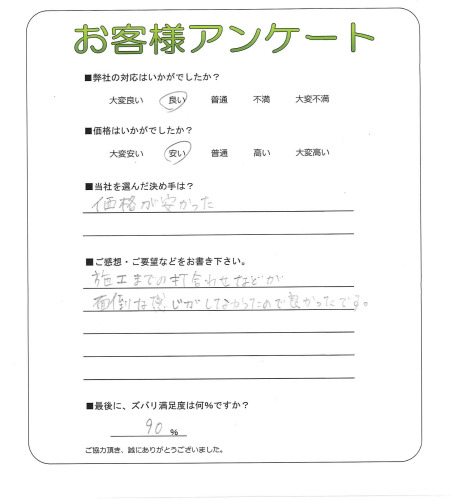 お客様アンケート
■弊社の対応はいかがでしたか？
大変良い 良い 普通 不満 大変不満
■価格はいかがでしたか？
大変安い 安い 普通 高い 大変高い
■当社を選んだ決め手は？
価格が安かった
■ご感想・ご要望などをお書き下さい。
施工までの打合わせなどが
面倒な感じがしなかったので良かったです。
■最後に、ズバリ満足度は何%ですか？
90 %
ご協力頂き、誠にありがとうございました。